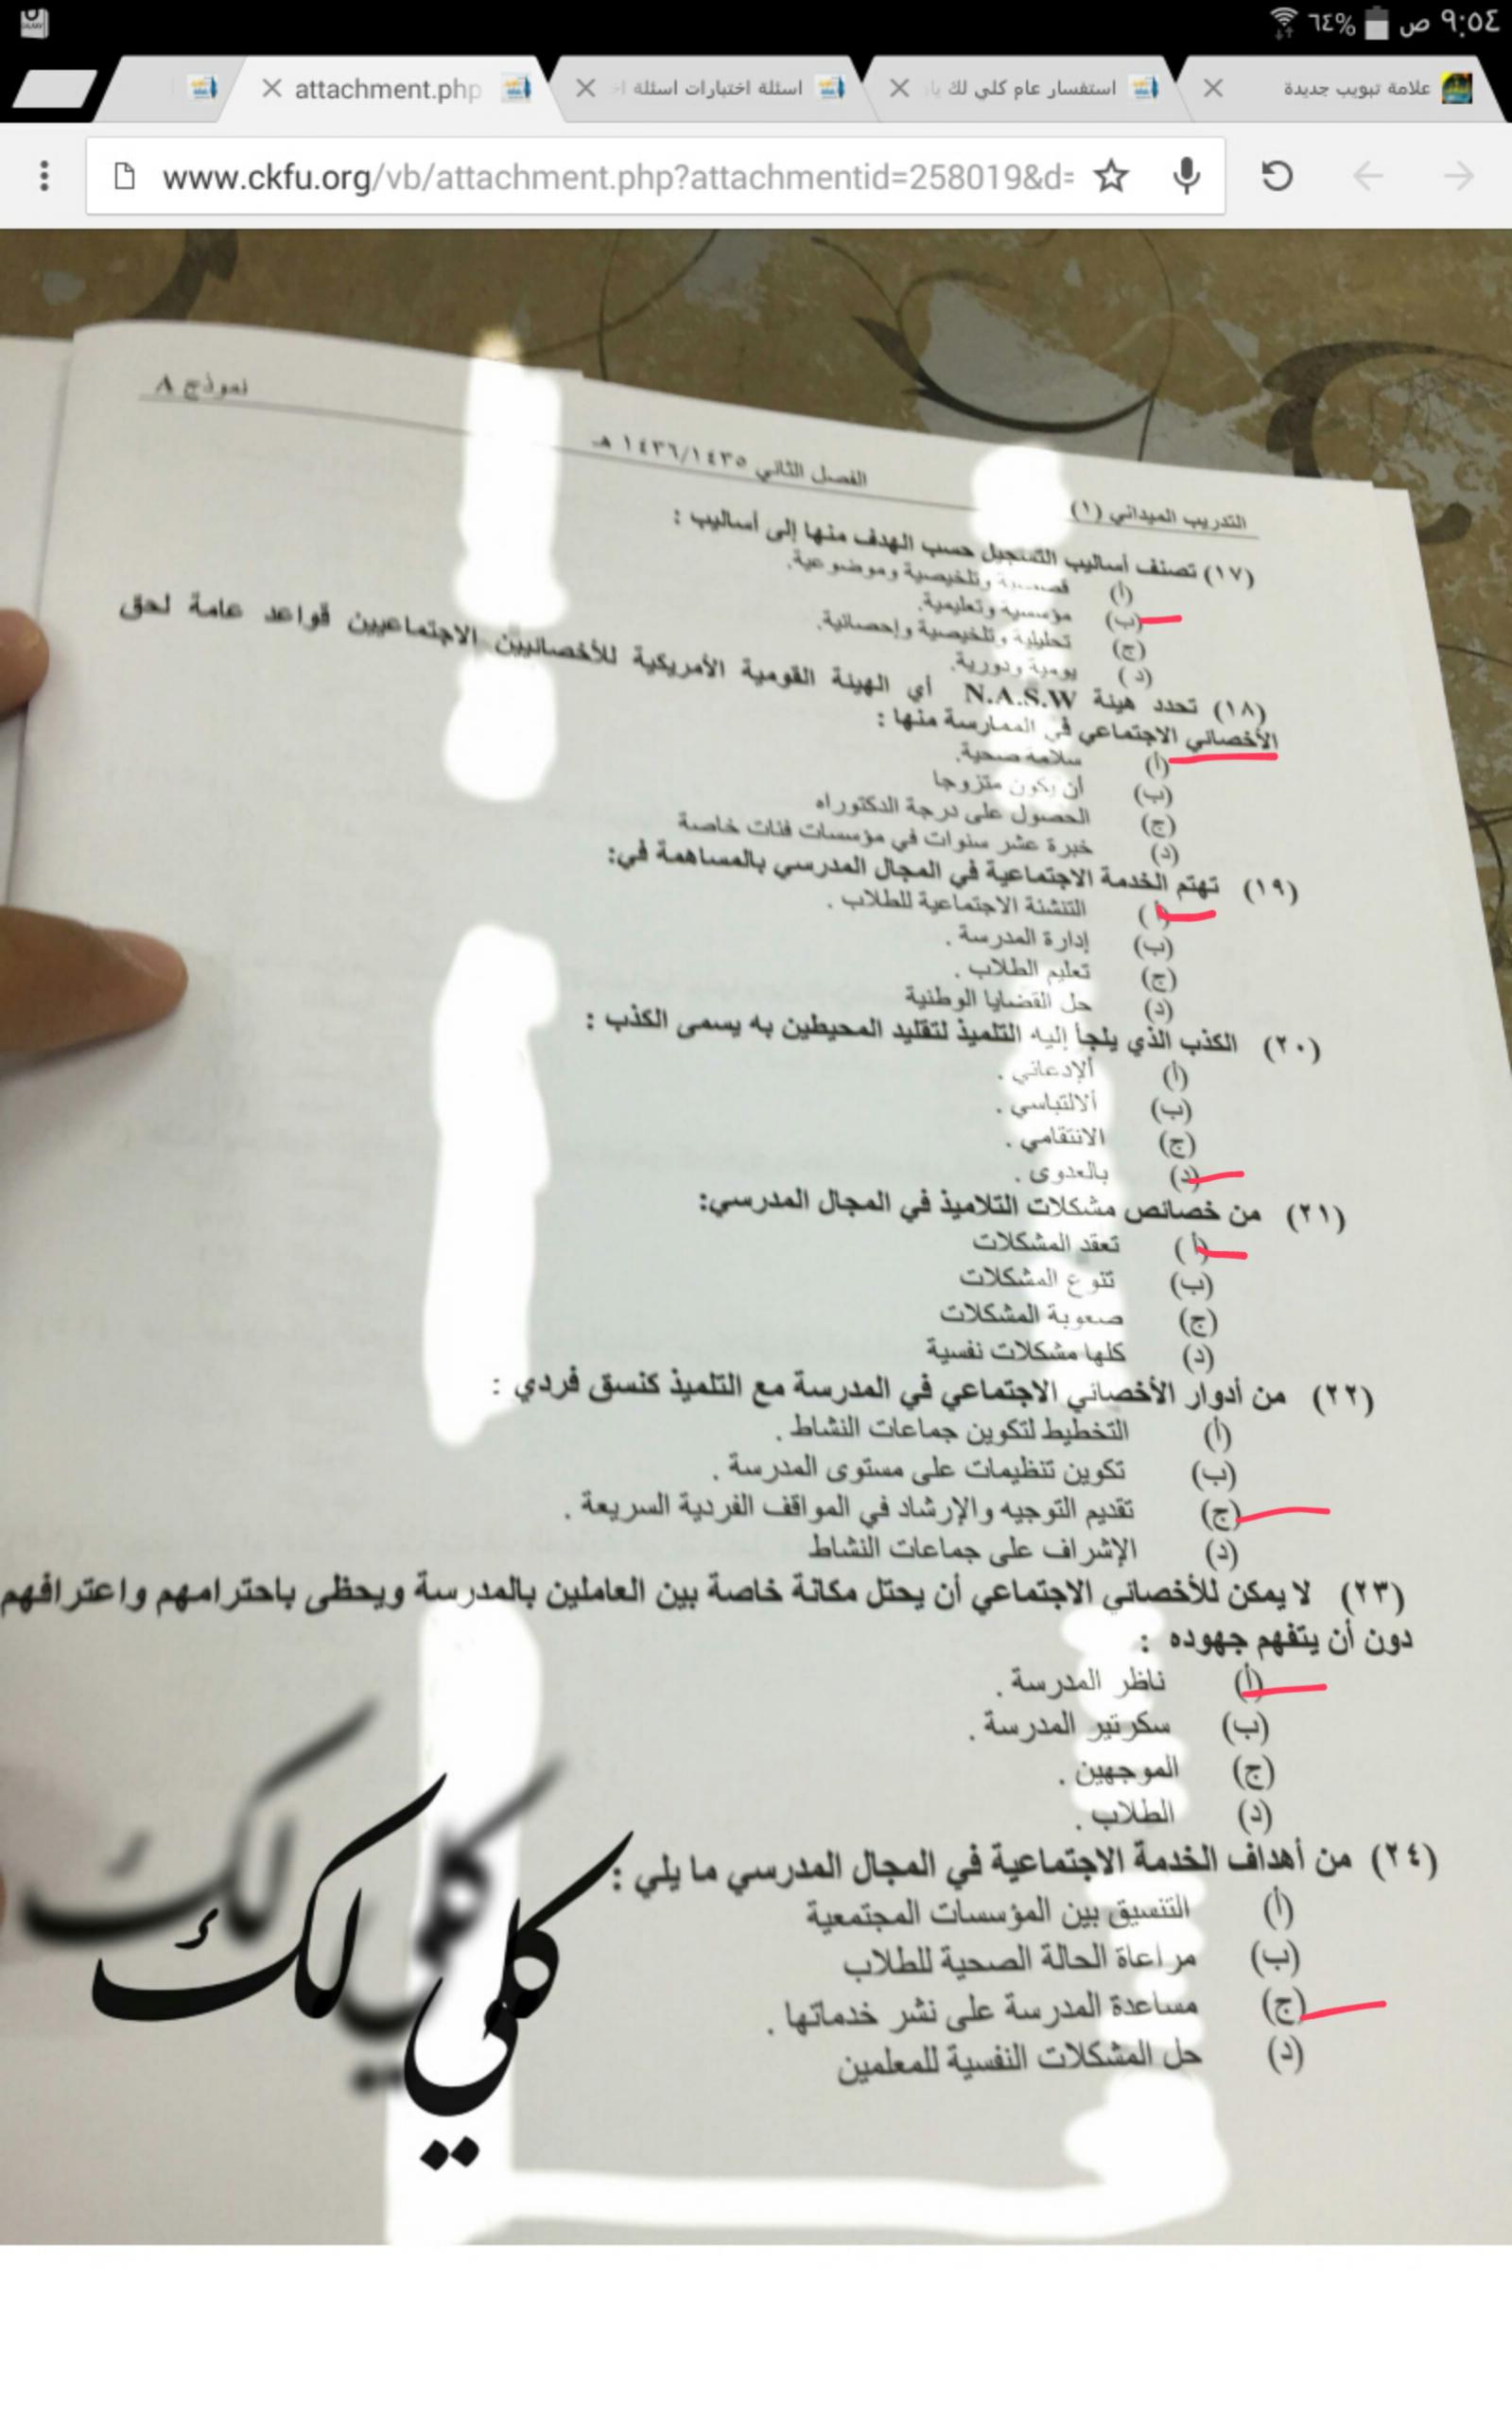 ٩:٥٤ ص ٦٤%
علامة تبويب جديدة
استفسار عام كلي لك
اسئلة اختبارات اسئلة
attachment.php
www.ckfu.org/vb/attachment.php?attachmentid=258019&d=
نموذج A
الفصل الثاني ١٤٣٦/١٤٣٥ هـ
التدريب الميداني (١)
(١٧) تصنف أساليب التسجيل حسب الهدف منها إلى أساليب :
(أ) وتلخيصية وموضوعية.
(ب) مؤسسية وتعليمية.
(ج) تحليلية وتلخيصية وإحصائية.
(د) يومية ودورية.
(١٨) تحدد هيئة N.A.S.W أي الهيئة القومية الأمريكية للأخصائيين الاجتماعيين قواعد عامة لحق
الأخصائي الاجتماعي في الممارسة منها :
(أ) سلامة صحية.
(ب) أن يكون متزوجا
(ج) الحصول على درجة الدكتوراه
(د) خبرة عشر سنوات في مؤسسات فئات خاصة
(١٩) تهتم الخدمة الاجتماعية في المجال المدرسي بالمساهمة في:
(أ) التنشئة الاجتماعية للطلاب .
(ب) إدارة المدرسة .
(ج) تعليم الطلاب .
(د) حل القضايا الوطنية
(٢٠) الكذب الذي يلجأ إليه التلميذ لتقليد المحيطين به يسمى الكذب :
(أ) ألإدعائي .
(ب) ألالتباسي .
(ج) الانتقامي .
(د) بالعدوى .
(٢١) من خصائص مشكلات التلاميذ في المجال المدرسي:
(أ) تعقد المشكلات
(ب) تنوع المشكلات
(ج) صعوبة المشكلات
(د) كلها مشكلات نفسية
(٢٢) من أدوار الأخصائي الاجتماعي في المدرسة مع التلميذ كنسق فردي :
(أ) التخطيط لتكوين جماعات النشاط .
(ب) تكوين تنظيمات على مستوى المدرسة .
(ج) تقديم التوجيه والإرشاد في المواقف الفردية السريعة .
(د) الإشراف على جماعات النشاط
(٢٣) لا يمكن للأخصائي الاجتماعي أن يحتل مكانة خاصة بين العاملين بالمدرسة ويحظى باحترامهم واعترافهم
دون أن يتفهم جهوده :
(أ) ناظر المدرسة .
(ب) سكرتير المدرسة .
(ج) الموجهين .
(د) الطلاب .
(٢٤) من أهداف الخدمة الاجتماعية في المجال المدرسي ما يلي :
(أ) التنسيق بين المؤسسات المجتمعية
(ب) مراعاة الحالة الصحية للطلاب
(ج) مساعدة المدرسة على نشر خدماتها .
(د) حل المشكلات النفسية للمعلمين
كلي لك